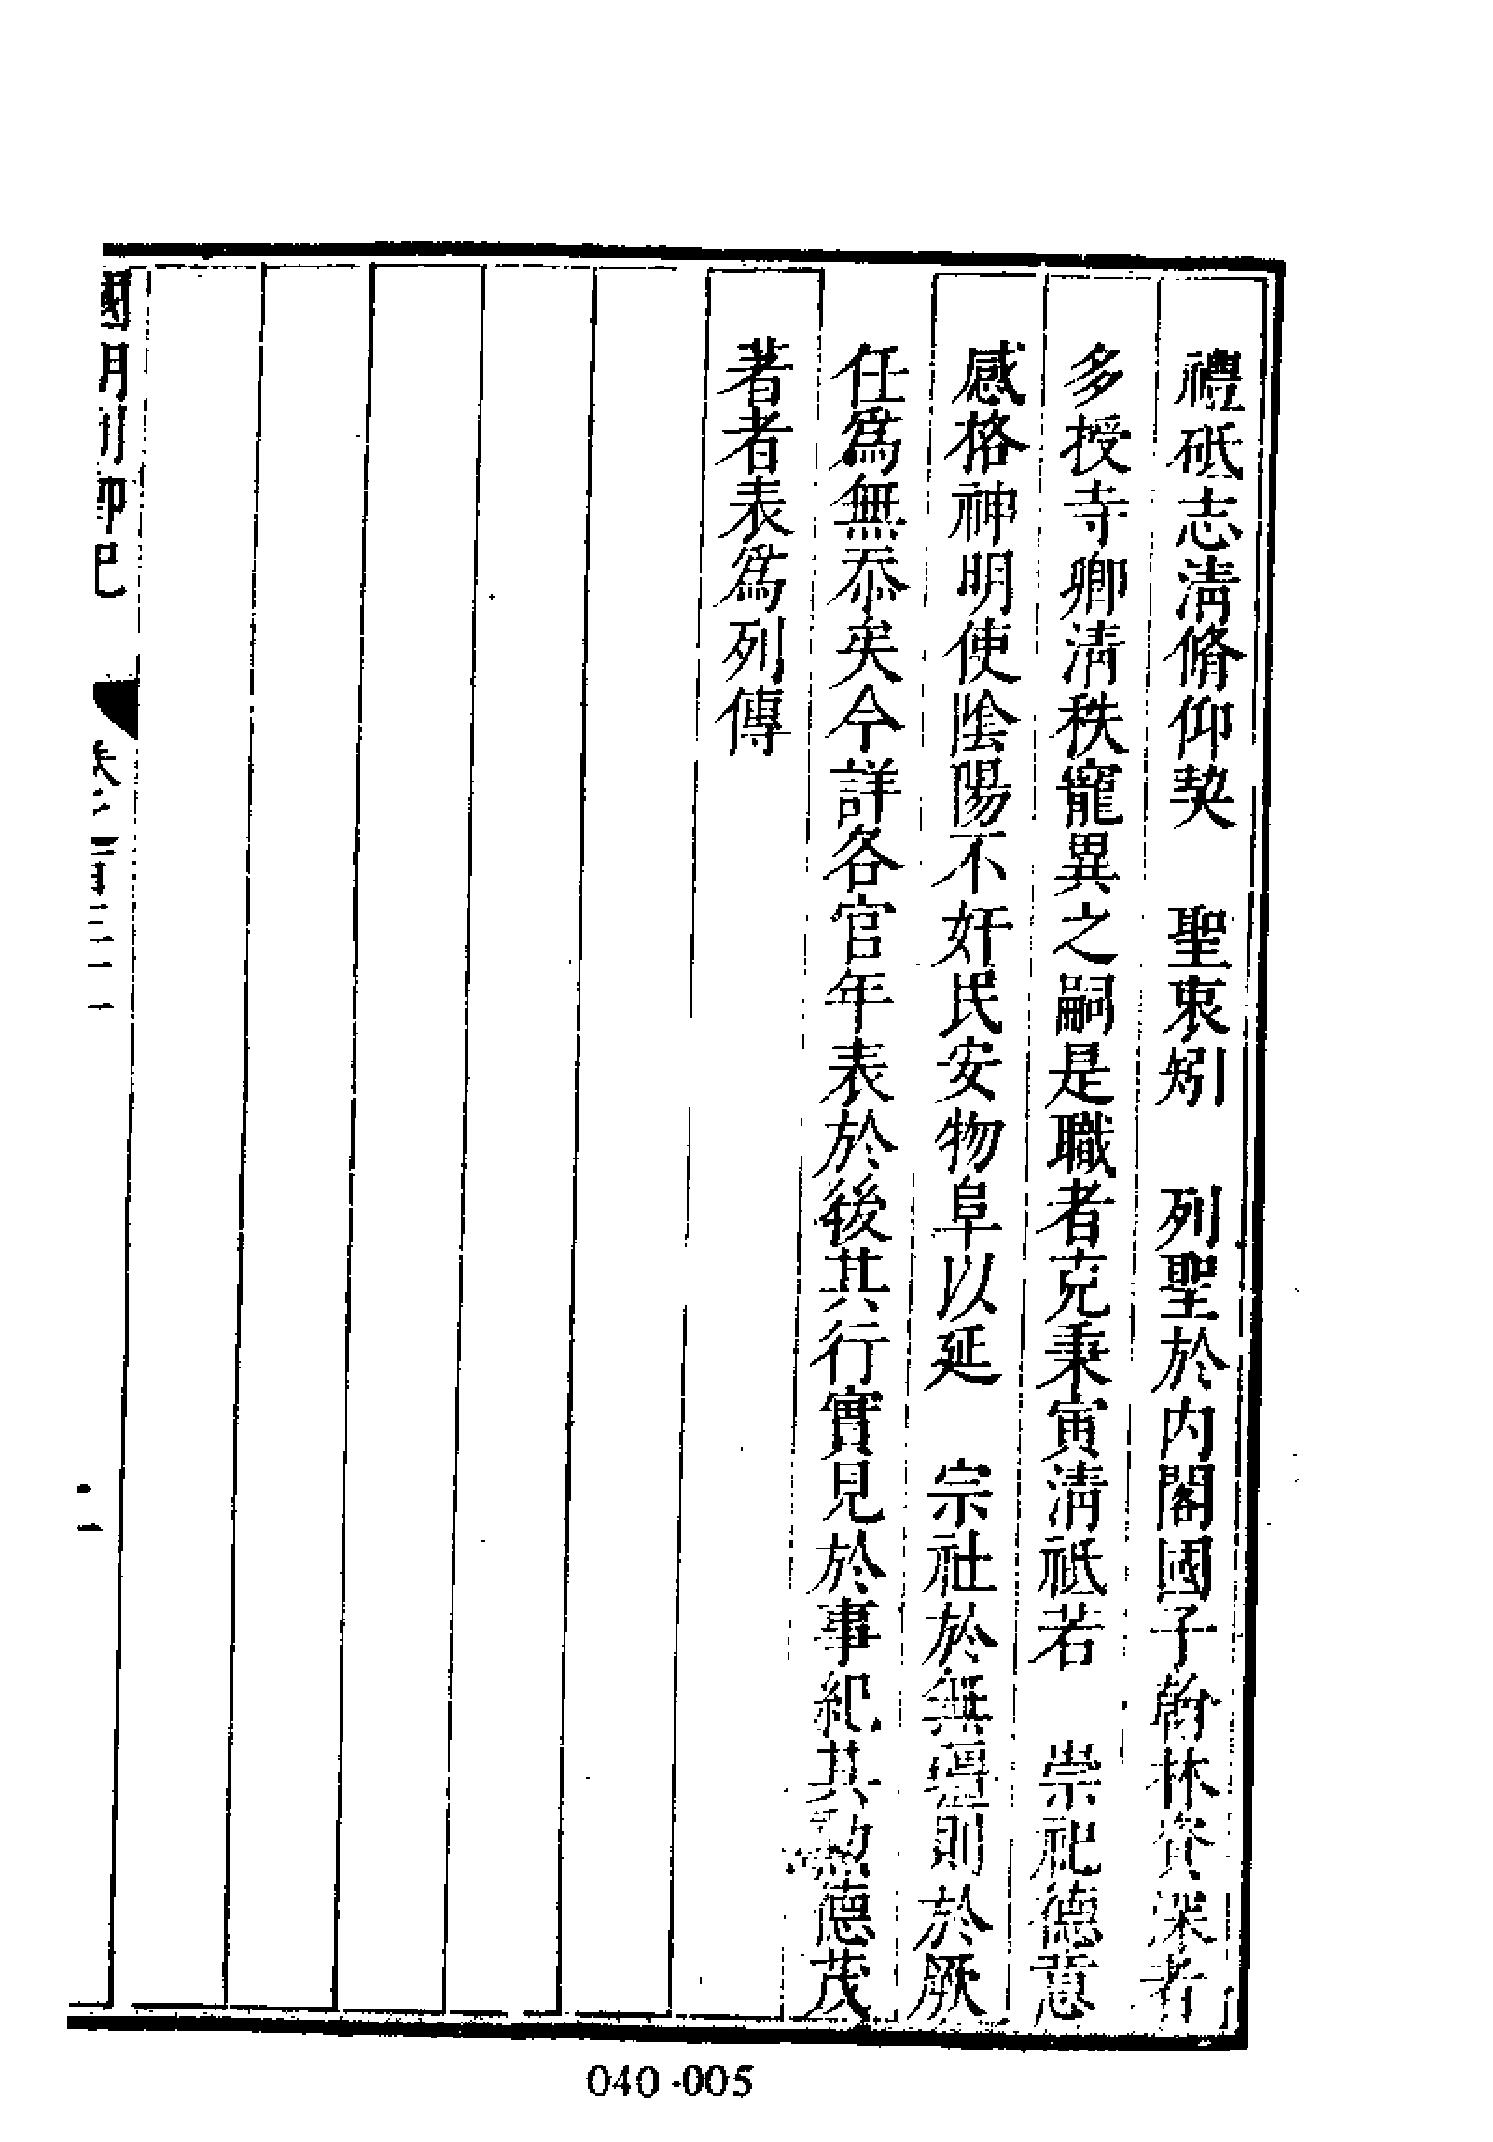 禮砥志淸脩仰契　聖衷矧　列聖於内閣國子翰林資深者
多授寺卿淸秩寵異之嗣是職者克秉寅淸祇若　崇祀德意
感格神明使陰陽不奸民安物阜以延　宗社於無疆則於厥
任爲無忝矣今詳各官年表於後其行實見於事紀其勲德茂
著者表爲列傳
國朝列卿紀
卷之一百三十一
040-005